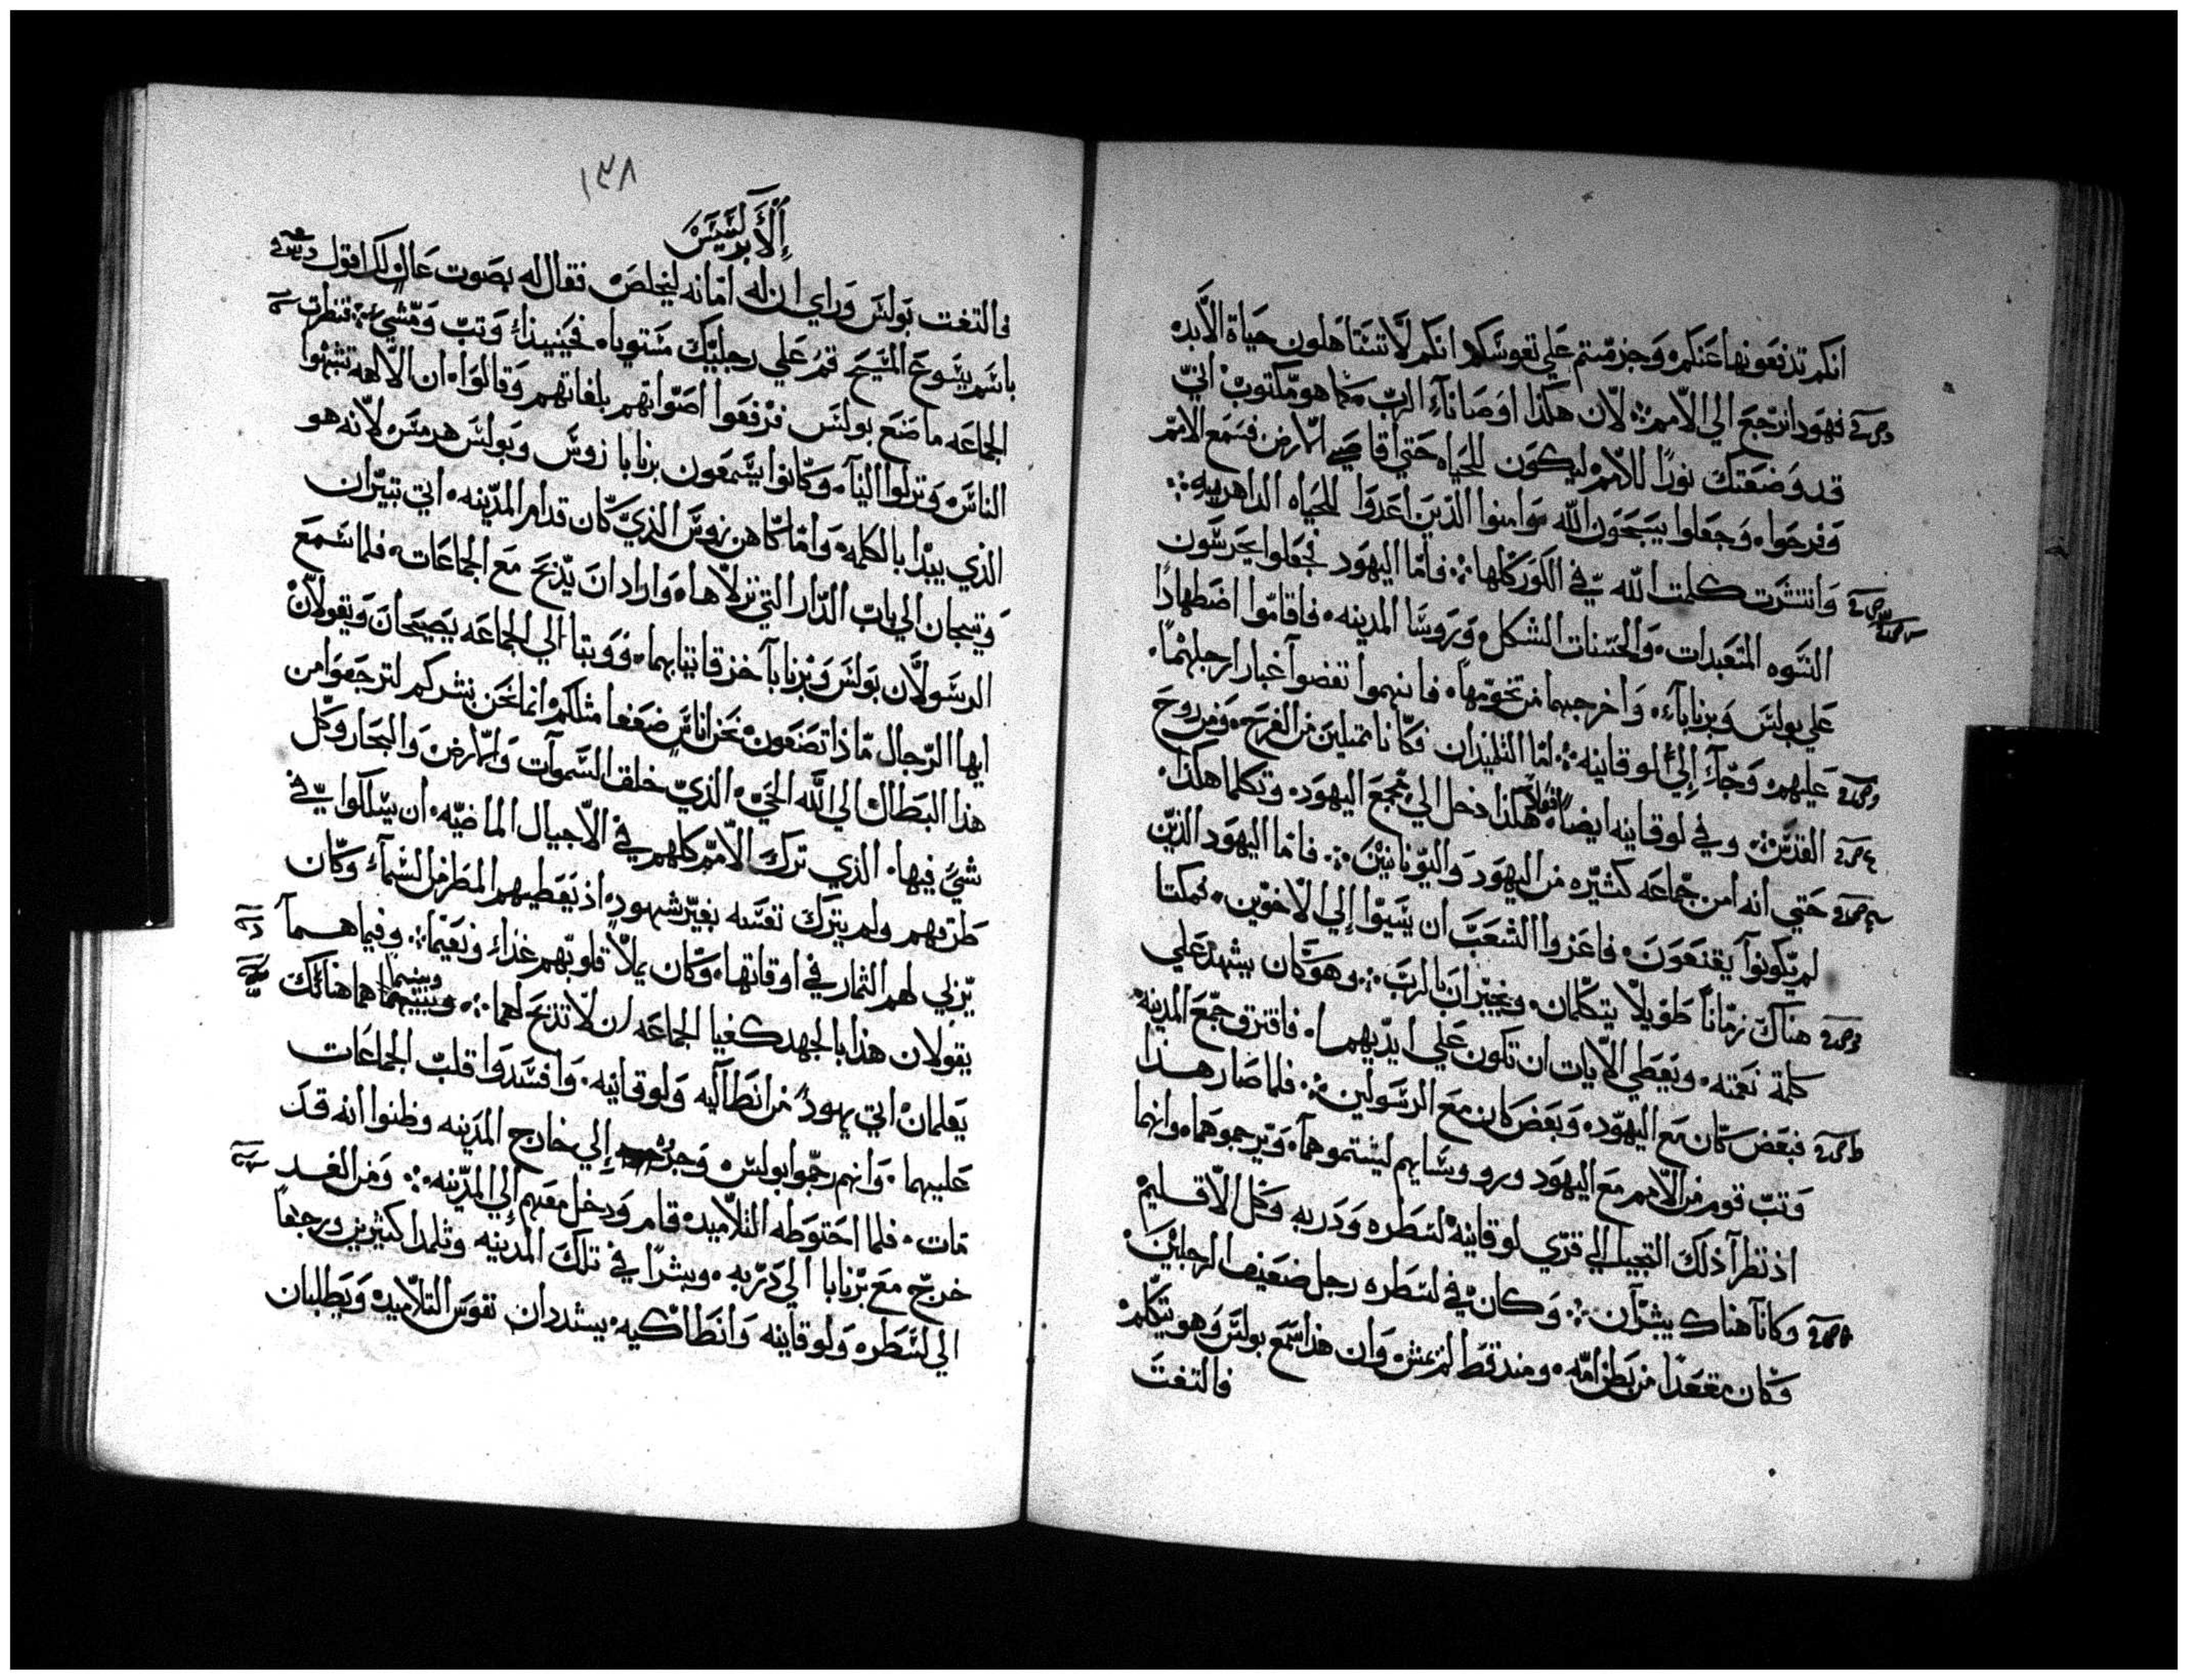 انكم تدفعونها عنكم وجزمتم علي نفوسكم انكم لا تستاهلون حياة الابد
فهودا نرجع الي الامم لان هكذا اوصانا الرب كما هو مكتوب اني
قد وضعتك نورًا للامم ليكون للحياه حتي اقاصي الارض فسمع الامم
وفرحوا وجعلوا يسبحون الله وامنوا الذين اعدوا للحياه الداهريه
وانتشرت كلمت الله في الكور كلها فاما اليهود فجعلوا يحرسون
النسوه المتعبدات والحسنات الشكل وروسا المدينه فاقاموا اضطهادًا
علي بولس وبرنابا واخرجهما من تخومها فانهموا نفضوا غبار ارجلهما
عليهم وجآ إلي لوقانيه اما التلميذان فكانا ممتلين من الفرح ومن روح
القدس وفي لوقانيه ايضا هكذا دخل الي مجمع اليهود وتكلما هكذا
حتي انه امن جماعه كثيره من اليهود واليونانيين فاما اليهود الذين
لم يكونوا يقنعون فاغروا الشعب ان يسيوا إلي الاخوين فمكثا
هناك زمانًا طويلا يتكلمان ويخبران بالرب وهو كان يشهد علي
كلمة نعمته ويعطي الايات ان تكون علي ايديهما فافترق جمع المدينه
فبعض كان مع اليهود وبعض كان مع الرسولين فلما صار هذا
وتب قوم من الامم مع اليهود وروسايهم ليشتموهما ويرجموهما وانهما
اذ نظرا ذلك التجيا الي قري لوقانية لسطره ودربه وكل الاقليم
وكانا هناك يبشران وكان في لسطره رجل ضعيف الرجلين
وكان مقعدًا من بطن امه ومند قط لم يمش وان هذا سمع بولس وهو يتكلم
فالتفت
١٣٨
الأبركسيس
فالتفت بولس وراي ان له امانه ليخلص فقال له بصوت عال لك اقول
باسم يسوع المسيح قم علي رجليك مستويا فحينيذ وتب ومشي فنظرت
الجماعه ما صنع بولس فرفعوا اصواتهم بلغاتهم وقالوا ان الالهه تشبهوا
الناس ونزلوا الينا وكانوا يسمعون برنابا زوس وبولس هرمس لانه هو
الذي يبدا بالكلمه واما كاهن زوس الذي كان قدام المدينه اتي بثيران
وتيجان الي باب الدار التي نزلاها واراد ان يدبح مع الجماعات فلما سمع
الرسولان بولس وبرنابا خزقا ثيابهما ووتبا الي الجماعه يصيحان ويقولان
ايها الرجال ماذا تصنعون نحن اناس ضعفا مثلكم انما نحن نبشركم لترجعوا من
هذا البطال الي الله الحي الذي خلق السموات والارض والبحار وكل
شي فيها الذي ترك الامم كلهم في الاجيال الماضيه ان يسلكوا في
طرقهم ولم يترك نفسه بغير شهود اذ يعطيهم المطر من السماء وكان
يربي لهم الثمار في اوقاتها وكان يملا قلوبهم غذاء ونعيما وفيما هما
يقولان هذا بالجهد كفيا الجماعه ان لا تذبح لهما وبينما هما هنالك
يعلمان اتي يهود من انطاكيه ولوقانيه وافسدوا قلب الجماعات
عليهما وانهم رجموا بولس وجروه إلي خارج المدينه وظنوا انه قد
مات فلما احتوطه التلاميد قام ودخل معهم إلي المدينه ومن الغد
خرج مع برنابا الي دربه وبشرا في تلك المدينه وتلمدا كثيرين ورجعا
الي لسطره ولوقانيه وانطاكيه يشددان نفوس التلاميد ويطلبان